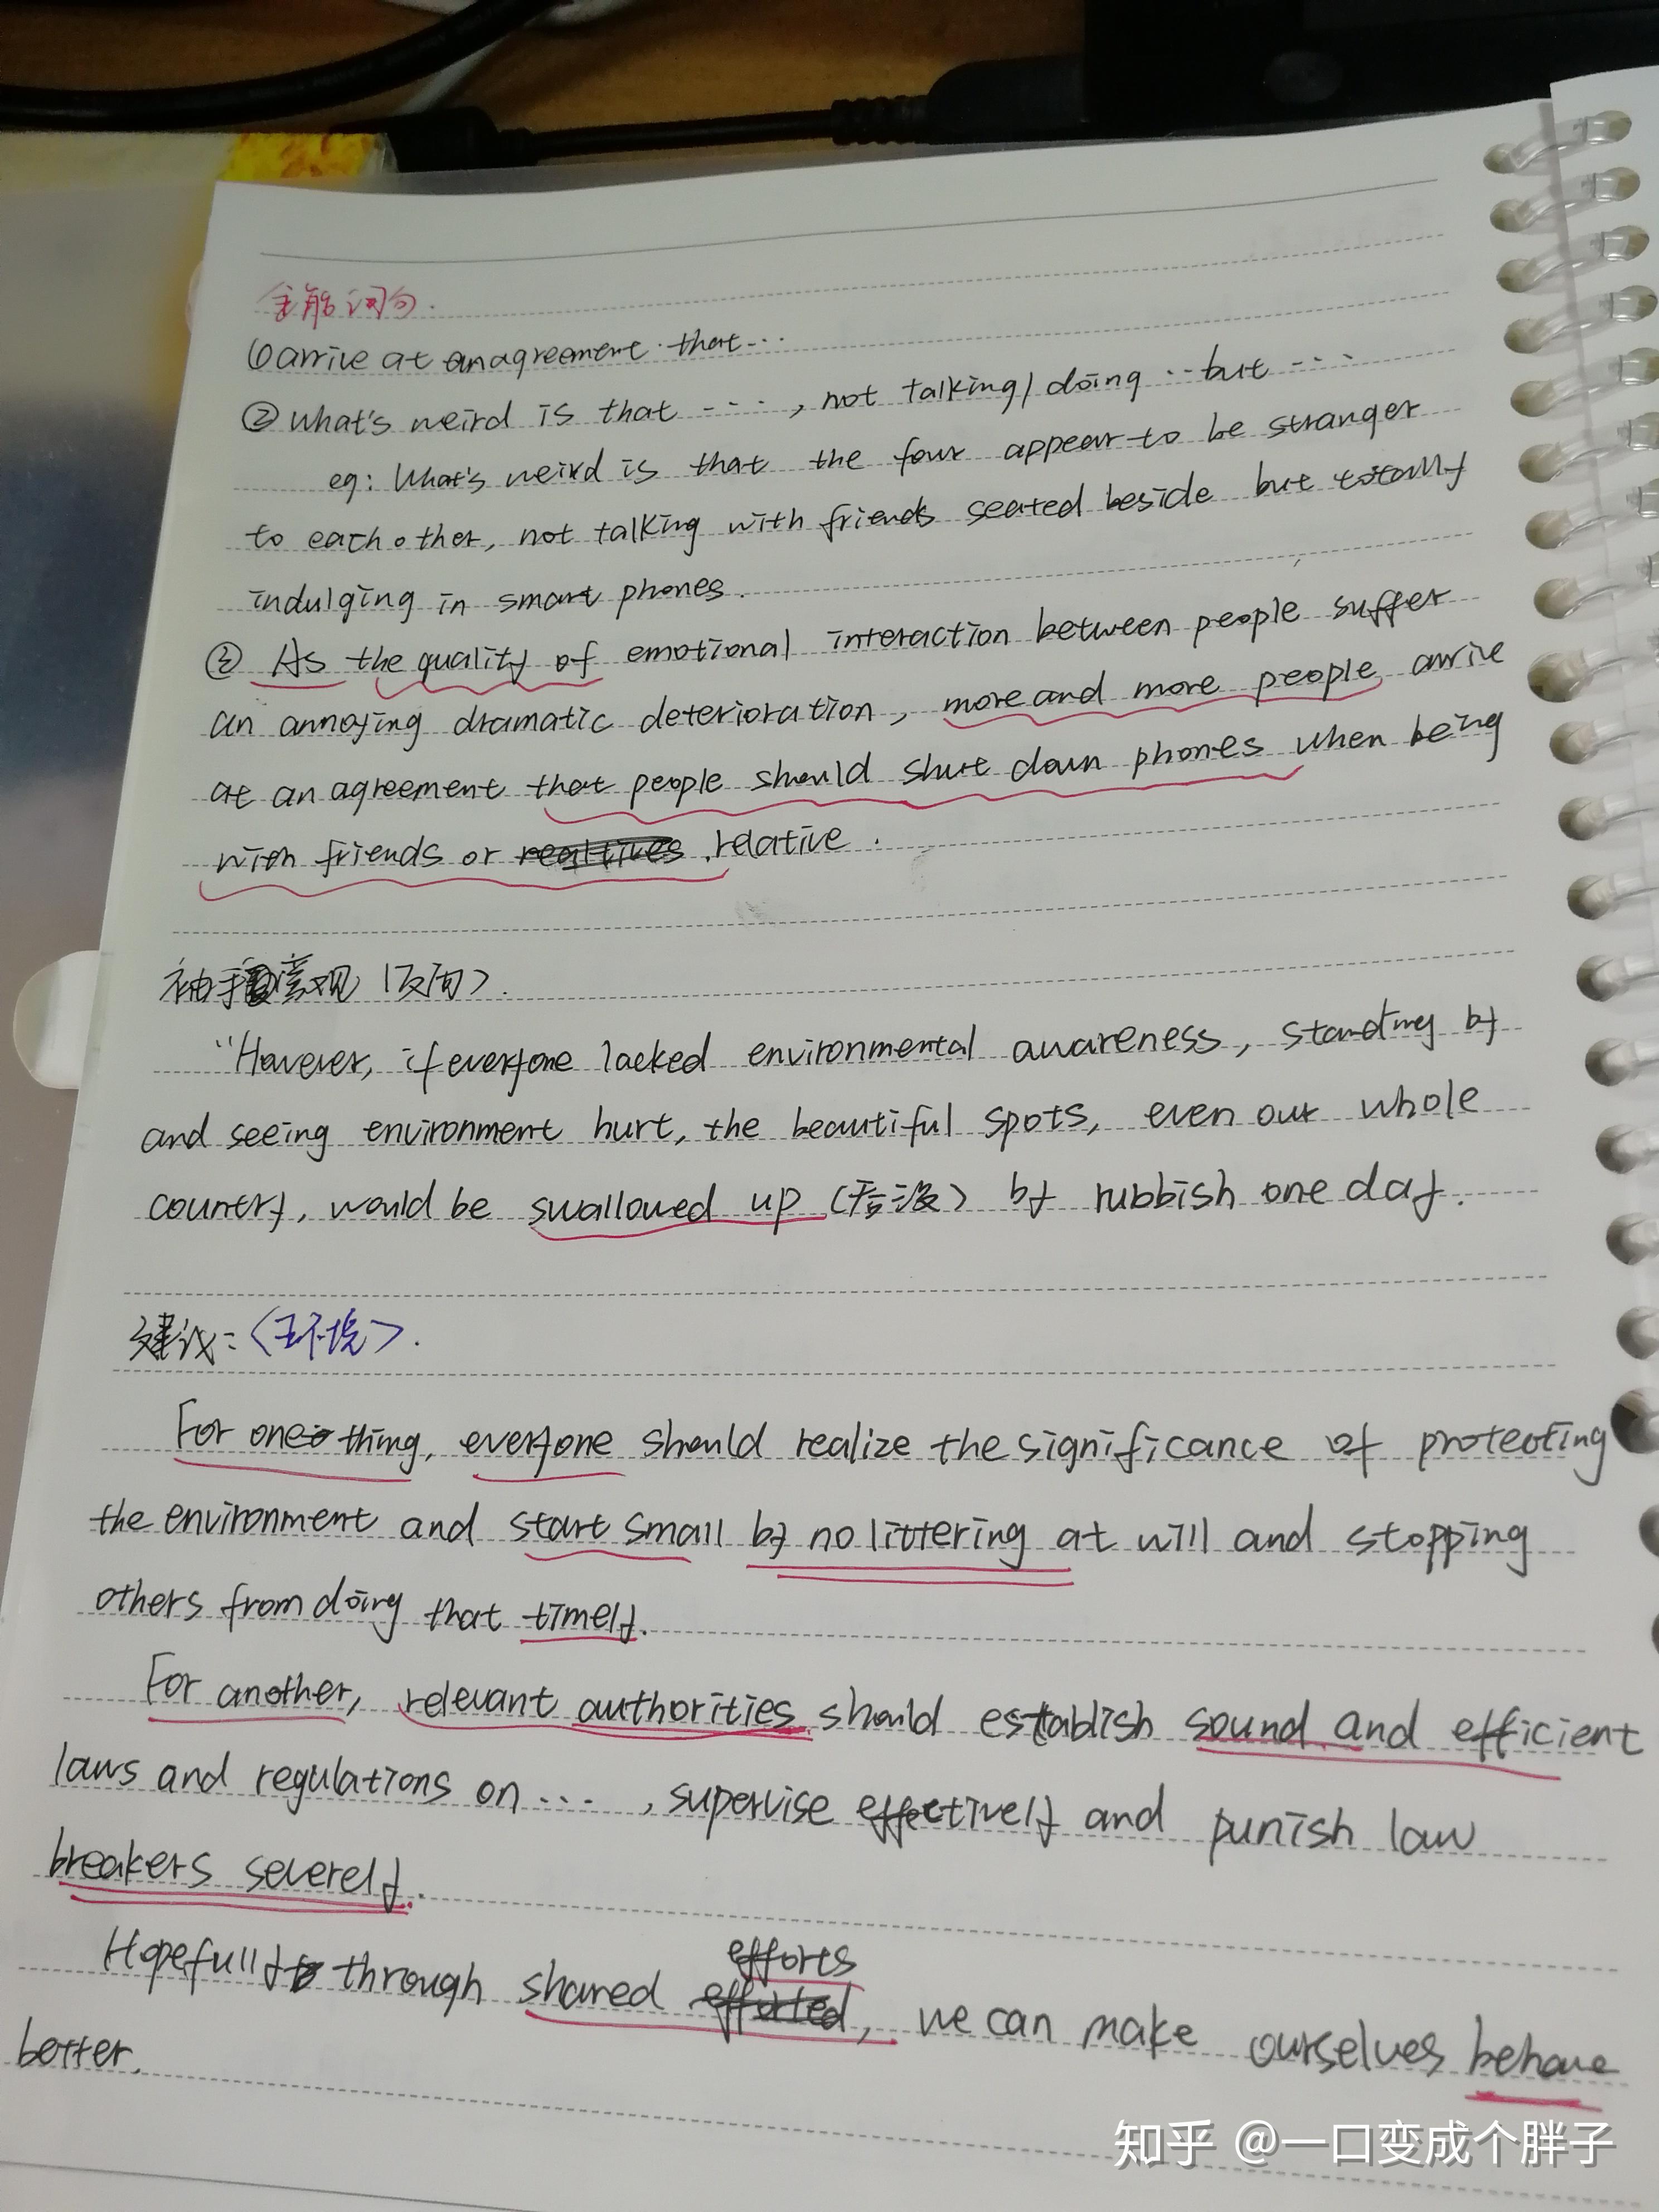 全能词句.
①arrive at an agreement that...
②What's weird is that ...., not talking/doing ..but ....
eg: What's weird is that the four appear to be stranger
to each other, not talking with friends seated beside but totally
indulging in smart phones.
③ As the quality of emotional interaction between people suffer
an annoying dramatic deterioration, more and more people arrive
at an agreement that people should shut down phones when being
with friends or relative.
袖手旁观(反面).
"However, if everyone lacked environmental awareness, standing by
and seeing environment hurt, the beautiful spots, even our whole
country, would be swallowed up (吞没) by rubbish one day.
建议:〈环境〉.
For one thing, everyone should realize the significance of protecting
the environment and start small by no littering at will and stopping
others from doing that timely.
For another, relevant authorities should establish sound and efficient
laws and regulations on ... , supervise effectively and punish law
breakers severely.
efforts
Hopefully through shared , we can make ourselves behave
better.
知乎 @一口变成个胖子